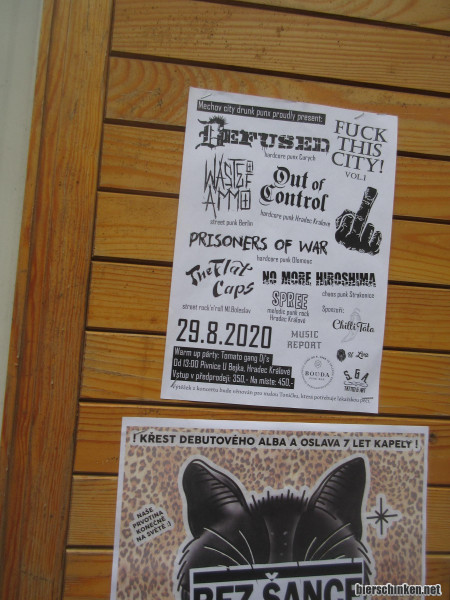 Mechov city drunk punx proudly present:
FUCK
THIS
CITY!
VOL.1
DEFUSED
hardcore punx Curych
WASTE OF
AMMO
street punk Berlin
Out of
Control
hardcore punk Hradec Králové
PRISONERS OF WAR
hardcore punx Olomouc
The Flat
Caps
street rock'n'roll Ml.Boleslav
NO MORE HIROSHIMA
chaos punk Strakonice
SPREE
melodic punk rock
Hradec Králové
Sponzoři:
Chilli Táta
29.8.2020
MUSIC
REPORT
BOUDA
S&A
TATTOO & ART
Warm up párty: Tomato gang Dj's
Od 13:00 Pivnice U Bejka, Hradec Králové
Vstup v předprodeji: 350,- Na místě: 450,-
! KŘEST DEBUTOVÉHO ALBA A OSLAVA 7 LET KAPELY !
NAŠE
PRVOTINA
KONEČNĚ
NA SVĚTĚ :)
BEZ ŠANCE
bierschinken.net